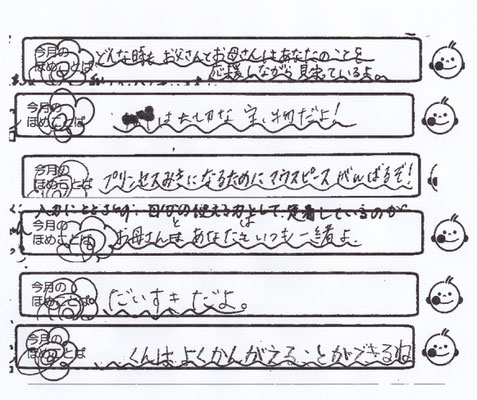 今月の
ほめことば
どんな時も お父さんとお母さんはあなたのことを
応援しながら見ているよ。
今月の
ほめことば
は大切な宝物だよ!
今月の
ほめことば
プリンセスみきになるためにマウスピースがんばるぞ!
今月の
ほめことば
お母さんとはあなたといつも一緒よ
今月の
ほめことば
だいすきだよ。
今月の
ほめことば
くんはよくかんがえることができるね